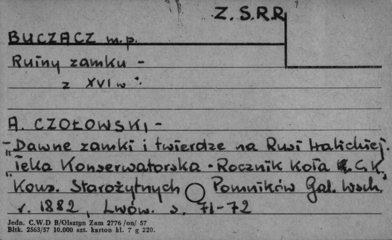 Z.S.R.R
BUCZACZ m.p.
Ruiny zamku -
z XVI w.
A. CZOŁOWSKI -
"Dawne zamki i twierdze na Rusi Halickiej.
"Teka Konserwatorska - Rocznik Koła C.K.
Kons. Starożytnych Pomników Gal. Wsch.
r. 1882, Lwów. s. 71-72
Jedn. C.W.D B/Olsztyn Zam 2776/on/ 57
Bltk. 2563/57 10.000 szt. karton kl. 7 g 220.